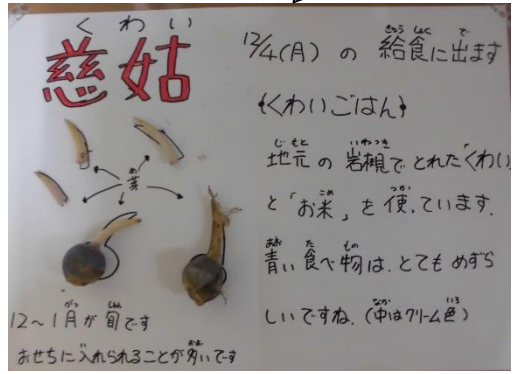 くわい
慈姑
芽
12～1月が旬です
おせちに入れられることが多いです
12/4(月)の給食に出ます
《くわいごはん》
地元の岩槻でとれた「くわい」
と「お米」を使っています.
青い食べ物は、とてもめずら
しいですね.(中はクリーム色)